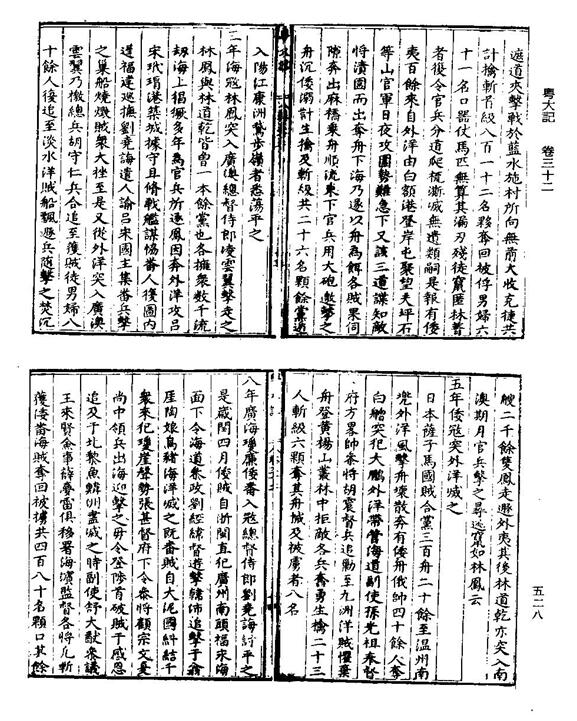 粵大記　卷三十二
五二八
遮道夾擊戰於藍水施村所向無前大收克捷共
計擒斬首級八百一十二名夥奪回被俘男婦六
十一名口器仗馬匹無算其漏刃殘徒竄匿林莽
者復令官兵分道爬梳澌滅無遺類嗣是報有倭
夷百餘來自外洋由白額港登岸屯聚望夫坪石
等山官軍日夜攻圍勢難急下又該三道謀知敵
將潰圍而出奔舟下海乃遂以舟為餌各賊果伺
隙奔出麻橋乘舟順流東下官兵用大砲邀擊之
舟沉倭溺計生擒及斬級共二十六名顆餘黨遁
入陽江廉洲驚步嶺者悉蕩平之
二年海寇林鳳突入廣澳總督侍郎凌雲翼擊走之
林鳳與林道乾皆曾一本餘黨也各擁衆數千流
刼海上猖獗多年為官兵所逐鳳因奔外洋攻呂
宋玳瑁港築城據守且脩戰艦謀脇番人復圖內
逞福建巡撫劉堯誨遣人諭呂宋國主集番兵擊
之巢船燒燬賊衆大挫至是又從外洋突入廣澳
雲翼乃檄總兵胡守仁兵合追至獲賊徒男婦八
十餘人後追至淡水洋賊船飄遯兵隨擊之焚沉
艘二千餘隻鳳走遯外夷其後林道乾亦突入南
澳期月官兵擊之尋遠竄如林鳳云
五年倭寇突外洋滅之
日本薩子馬國賊合黨三百舟二十餘至溫州南
麂外洋風擊舟壞散奔有倭舟俄帥四十餘人奪
白艚突犯大鵬外洋帶管海道副使孫光祖奉督
府方畧帥叅將胡震督兵追勦至九洲洋賊懼棄
舟登黃楊山叢林中拒敵各兵奮勇生擒二十三
人斬級六顆奪其舟械及被虜者八名
八年廣海瓊廉倭番入寇總督侍郎劉堯誨討平之
是歲閏四月倭賊自浙閩直犯廣州南頭福來海
面下令海道叅政劉經緯督遊擊韓沛追擊于翕
厓陶娘烏豬海洋滅之既番賊自大泥國糾結千
衆來犯瓊崖聲勢張甚督府下令叅將顧宗文晏
尚中領兵出海迎擊之毋令登陟首破賊于感恩
追及于北黎魚鱗洲盡滅之時副使舒大猷叅議
王來賢僉事薛夢雷俱移署海濱監督各將凡斬
獲倭番海賊奪回被擄共四百八十名顆口其餘